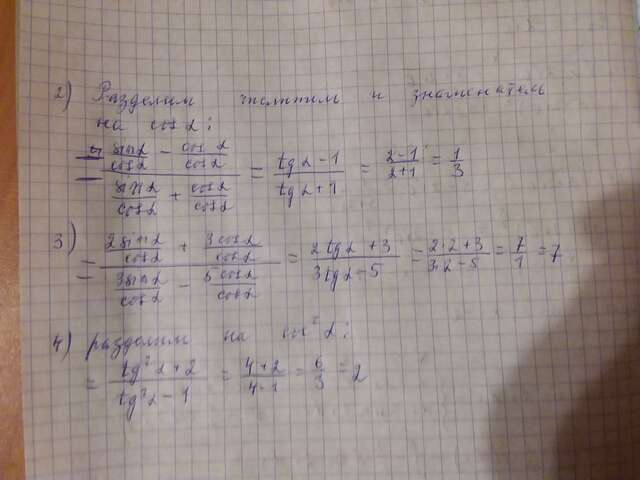 2) Разделим числитель и знаменатель
на cos α:
= (sin α/cos α − cos α/cos α)/(sin α/cos α + cos α/cos α) = (tg α − 1)/(tg α + 1) = (2−1)/(2+1) = 1/3
3) = (2 sin α/cos α + 3 cos α/cos α)/(3 sin α/cos α − 5 cos α/cos α) = (2 tg α + 3)/(3 tg α − 5) = (2·2+3)/(3·2−5) = 7/1 = 7
4) разделим на cos² α:
= (tg² α + 2)/(tg² α − 1) = (4+2)/(4−1) = 6/3 = 2